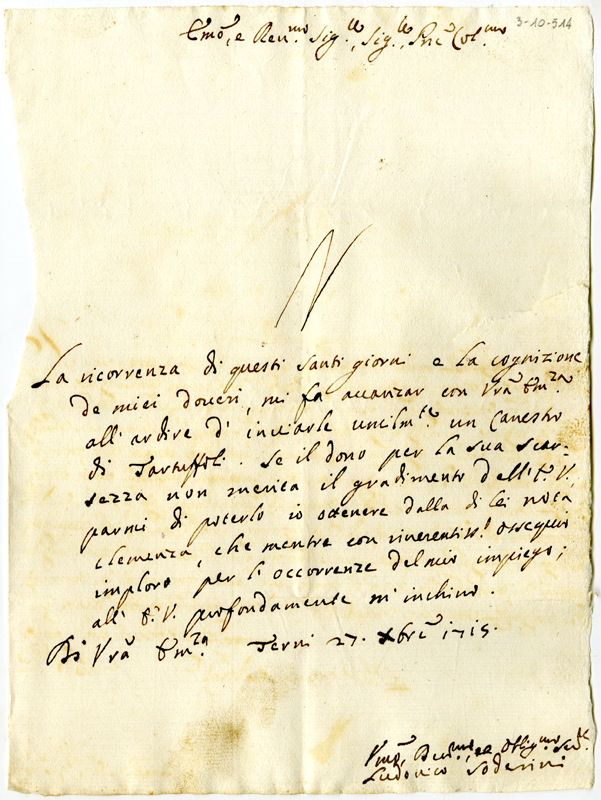 3-10-514
Emo, e Reu.mo Sig.re, Sig.re, Pnē Col.mo
La ricorrenza di questi santi giorni e la cognizione
de miei doueri, mi fa auanzar con Vrā Em.za
all' ardire d' inuiarle umilm.te un Canestro
di Tartuffoli. Se il dono per la sua scar-
sezza non merita il gradimento dell' E. V.
parmi di poterlo io ottenere dalla di lei nota
clemenza, che mentre con riuerentiss.o ossequio
imploro per l' occorrenze del mio impiego;
all' E. V. profondamente m' inchino.
Di Vrā Em.za Terni 27. Xbrē 1715.
Vmo, Deu.mo, ed Oblig.mo Se.re
Ludouico Soderini